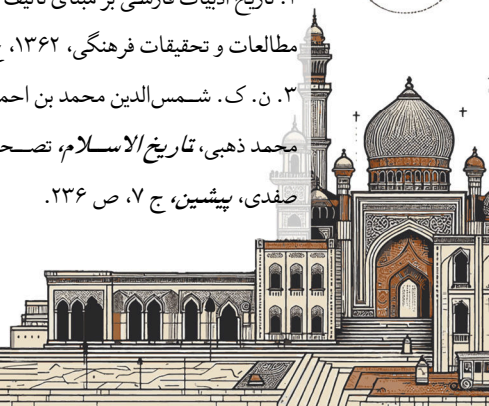 تاریخ ادبیات فارسی بر مبنای تألیف
مطالعات و تحقیقات فرهنگی، ۱۳۶۲،
۳. ن. ک. شمس‌الدین محمد بن احمد
محمد ذهبی، تاریخ الاسلام، تصح
صفدی، پیشین، ج ۷، ص ۲۳۶.